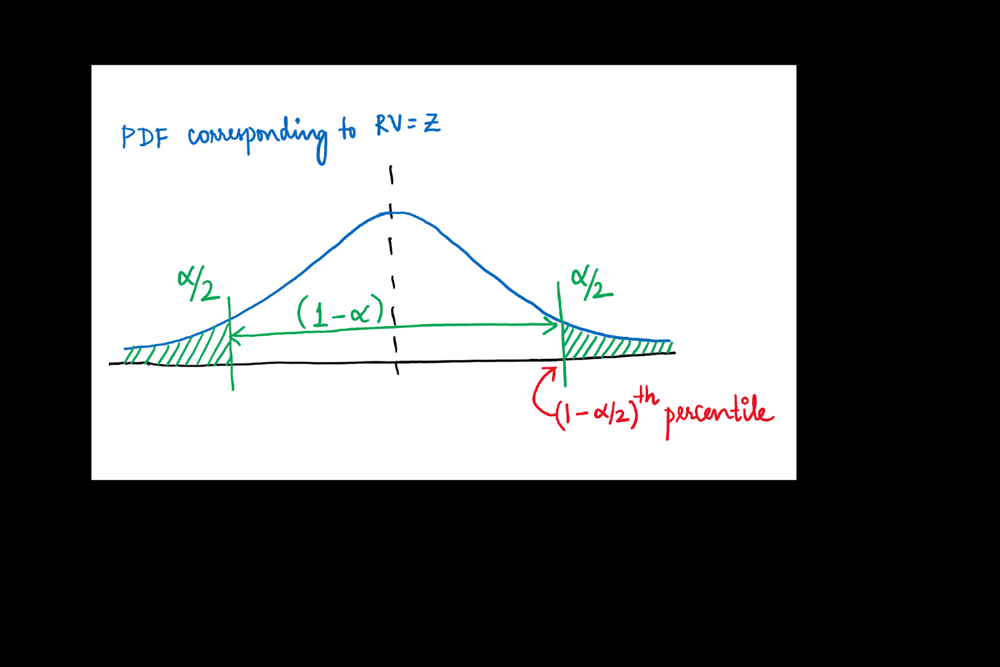 PDF corresponding to RV = Z
α/2
α/2
(1-α)
(1-α/2)th percentile